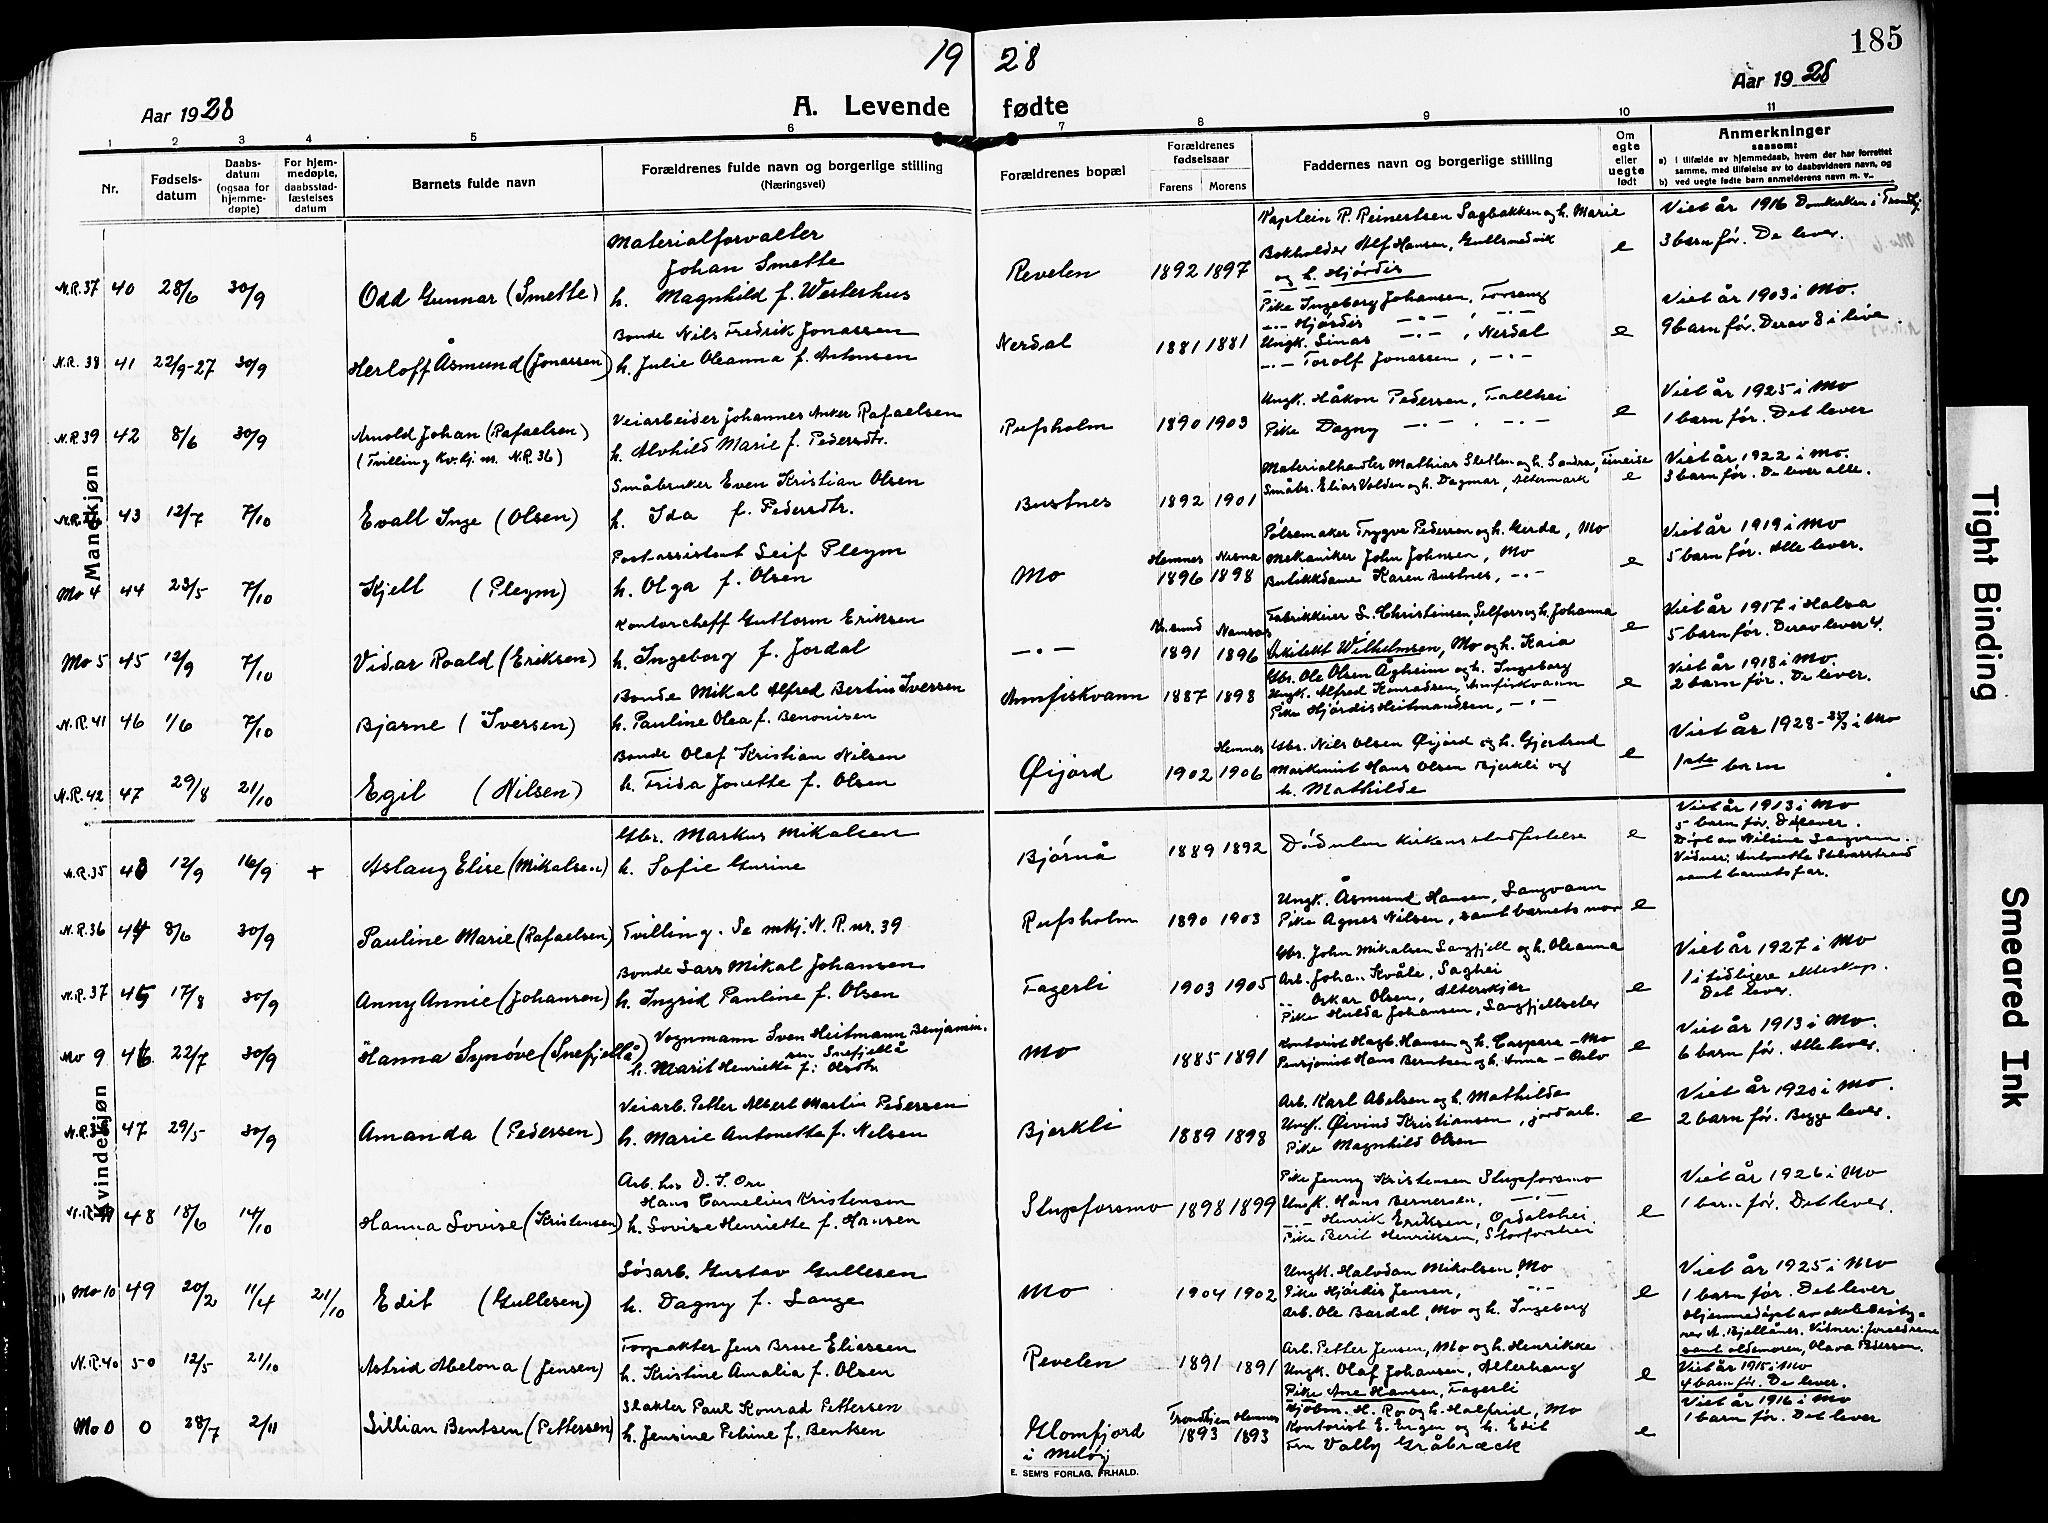 19 28
185
Aar 1928
A. Levende fødte
Aar 1928
1 2 3 4 5 6 7 8 9 10 11
Nr.
Fødsels-
datum
Daabs-
datum
(ogsaa for
hjemme-
døpte)
For hjem-
medøpte,
daabsstad-
fæstelses
datum
Barnets fulde navn
Forældrenes fulde navn og borgerlige stilling
(Næringsvei)
Forældrenes bopæl
Forældrenes
fødselsaar
Farens Morens
Faddernes navn og borgerlige stilling
Om
egte
eller
uegte
født
Anmerkninger
saasom:
a) i tilfælde av hjemmedaab, hvem der har forrettet
samme, med tilføielse av to daabsvidners navn, og
b) ved uegte fødte barn anmelderens navn m. v.
Mandkjøn
N.R.37 40 28/6 30/9 Odd Gunnar (Smette)
Materialforvalter
Johan Smette
h. Magnhild f. Westerhus
Revelen 1892 1897
Kaptein R. Reinertsen Sagbakken og h. Marie
Bokholder Alf Hansen, Gullsmedvik
og h. Hjørdis
e
Viet år 1916 Domkirken i Trondhj.
3 barn før. De lever.
N.R. 38 41 22/9-27 30/9 Herloff Åsmund (Jonassen)
Bonde Nils Fredrik Jonassen
h. Julie Oleanna f. Antonsen
Nerdal 1881 1881
Pike Ingeborg Johansen, Forseng
-.- Hjørdis -.- , -.-
Ungk. Linas -.- , Nerdal
-.- Torolf Jonassen, -.-
e
Viet år 1903 i Mo.
9 barn før. Derav 8 i live.
N.R.39 42 8/6 30/9 Arnold Johan (Rafaelsen)
(Tvilling Kv.kj. nr. N.R.36)
Veiarbeider Johannes Anker Rafaelsen
h. Alvhild Marie f. Pedersdtr.
Rufsholm 1890 1903
Ungk. Håkon Pedersen, Fallhei
Pike Dagny -.- . -.-
e
Viet år 1925 i Mo
1 barn før. Det lever
43 12/7 7/10 Evall Inge (Olsen)
Småbruker Even Kristian Olsen
h. Ida f. Pedersdtr.
Bustnes 1892 1901
Materialhandler Mathias Sletten og h. Sandra, Finneide
Småbr. Elias Volden og h. Dagmar, Altermark
e
Viet år 1922 i Mo.
3 barn før. De lever alle.
Mo 4 44 23/5 7/10 Kjell (Pleym)
Postassistent Leif Pleym
h. Olga f. Olsen
Mo Hemnes 1896 Nesna 1898
Pølsemaker Trygve Pedersen og h. Gerda, Mo
Mekaniker John Johnsen, Mo
Butikkdame Karen Bustnes, -.-
e
Viet år 1919 i Mo
5 barn før. Alle lever.
Mo 5 45 12/9 7/10 Vidar Roald (Eriksen)
Kontorcheff Guttorm Eriksen
h. Ingeborg f. Jordal
-.- Kr.sund 1891 Namsos 1896
Fabrikkeier L. Christensen, Selfors og h. Johanna
Arkitekt Wilhelmsen, Mo og h. Kaia
e
Viet år 1917 i Halsa
5 barn før. Derav lever 4.
N.R.41 46 1/6 7/10 Bjarne (Iversen)
Bonde Mikal Alfred Bertin Iversen
h. Pauline Olea f. Benonisen
Annfiskvann 1887 1898
Gbr. Ole Olsen Ågheim og h. Ingeborg
Ungk. Alfred Konradsen, Annfiskvann
Pike Hjørdis Heitmandsen, -.-
e
Viet år 1918 i Mo.
2 barn før. De lever.
N.R.42 47 29/8 21/10 Egil (Nilsen)
Bonde Olaf Kristian Nilsen
h. Frida Jonette f. Olsen
Øijord 1902 Hemnes 1906
Gbr. Nils Olsen Øijord og h. Gjertrud
Maskinist Hans Olsen Bjerkli og
h. Mathilde
e
Viet år 1928 - i Mo
1ste barn
Kvindekjøn
N.R.35 43 12/9 16/9 + Aslaug Elise (Mikalsen)
Gbr. Markus Mikalsen
h. Sofie Gurine
Bjørnå 1889 1892
Død uten kirkens stadfestelse
e
Viet år 1913 i Mo
5 barn før. De lever.
Døpt av Nilsine Langvann.
Vidner: Antonette Stelvasstrand
samt barnets far.
N.R.36 44 8/6 30/9 Pauline Marie (Rafaelsen)
Tvilling. Se mkj. N.R. nr. 39
Rufsholm 1890 1903
Ungk. Åsmund Hansen, Langvann
Pike Agnes Nilsen, samt barnets mor
e
N.R.37 45 17/8 30/9 Anny Annie (Johansen)
Bonde Lars Mikal Johansen
h. Ingrid Pauline f. Olsen
Fagerli 1903 1905
Gbr. John Mikalsen Langfjell og h. Oleanna
Arb. Johan Kvåle, Saghei
-.- Oskar Olsen, Alterskjær
Pike Hulda Johansen, Langfjellseter
e
Viet år 1927 i Mo
1 i tidligere ekteskap.
Det lever.
Mo 9 46 22/7 30/9 Hanna Synøve (Snefjellå)
Vognmann Sven Heitmann Benjamin-
sen Snefjellå
h. Marit Henrikke f: Olsdtr
Mo 1885 1891
Kontorist Hagb. Hansen og h. Caspara - Mo
Pensjonist Hans Berntsen og h. Anna - Oslo
e
Viet år 1913 i Mo.
6 barn før. Alle lever.
47 29/5 30/9 Amanda (Pedersen)
Veiarb. Petter Albert Martin Pedersen
h. Marie Antonette f. Nilsen
Bjerkli 1889 1898
Arb. Karl Abelsen og h. Mathilde
Ungk. Øivind Kristiansen, jordarb.
Pike Magnhild Olsen
e
Viet år 1920 i Mo.
2 barn før. Begge lever.
48 18/6 14/10 Hanna Lovise (Kristensen)
Arb. hos D. I. Ore
Hans Cornelius Kristensen
h. Lovise Henriette f. Hansen
Stupforsmo 1898 1899
Pike Jenny Kristensen Stupforsmo
Ungk. Hans Bernersen, -.-
-.- Henrik Eriksen, Opdalshei.
Pike Berit Henriksen, Storforshei
e
Viet år 1926 i Mo
1 barn før. Det lever.
Mo 10 49 20/2 11/4 21/10 Edit (Gullesen)
Løsarb. Gustav Gullesen
h. Dagny f. Lange
Mo 1904 1902
Ungk. Halvdan Mikalsen, Mo
Pike Hjørdis Jensen, -.-
Arb. Ole Bardal, Mo og h. Ingeborg
e
Viet år 1925 i Mo
1 barn før. Det lever
Hjemmedøpt av skolebesty-
rer A. Bjellånes. Vidner: foreldrene
samt oldemoren, Olava Pedersen.
N.R.40 50 12/5 21/10 Astrid Abelona (Jensen)
Forpakter Jens Brose Eliassen
h. Kristine Amalia f. Olsen
Revelen 1891 1891
Arb. Petter Jensen, Mo og h. Henrikke
Ungk. Olaf Johansen, Alterhaug
Pike Ane Hansen, Fagerli
e
Viet år 1915 i Mo
4 barn før. De lever.
Mo 0 0 28/7 2/11 Lillian Bentsen (Pettersen)
Slakter Paul Konrad Pettersen
h. Jensine Petrine f. Bentsen
Glomfjord
i Meløy
Trondhjem 1893 Hemnes 1893
Kjøbm. H. Ro og h. Halfrid, Mo
Kontorist E. Engen og h. Edit
Fru Valby Gråbræck
e
Viet år 1916 i Mo
1 barn før. Det lever
E. SEM'S FORLAG, FR.HALD.
Tight Binding
Smeared Ink